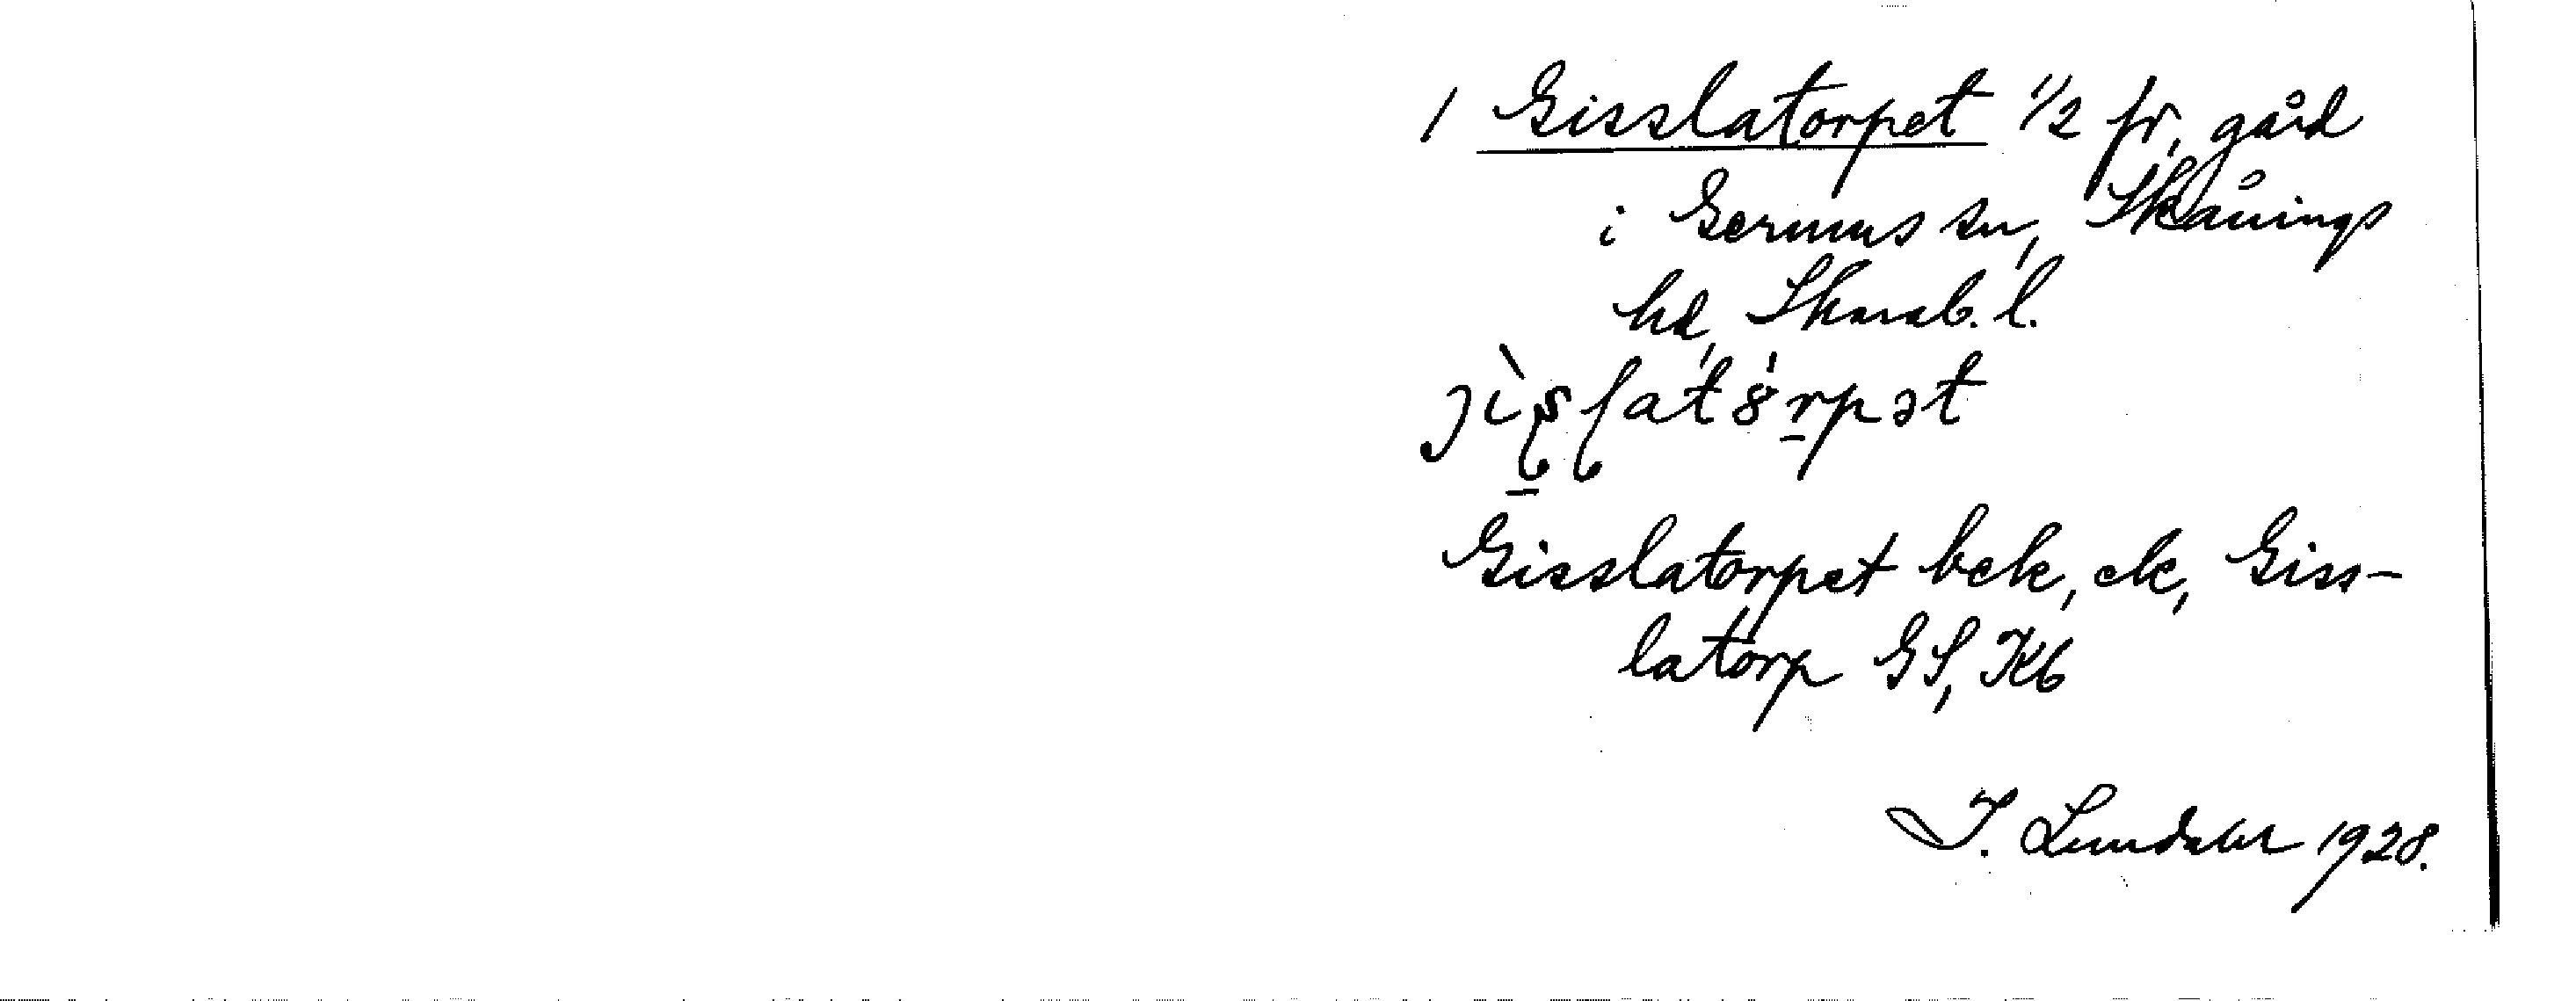 1 Gisslatorpet 1/2 fr, gård
i Gerums sn, Skånings
hd, Skarab. l.
Gisslatorpet bek, ek, Giss-
latorp GS, Kb
I. Lundahl 1928.